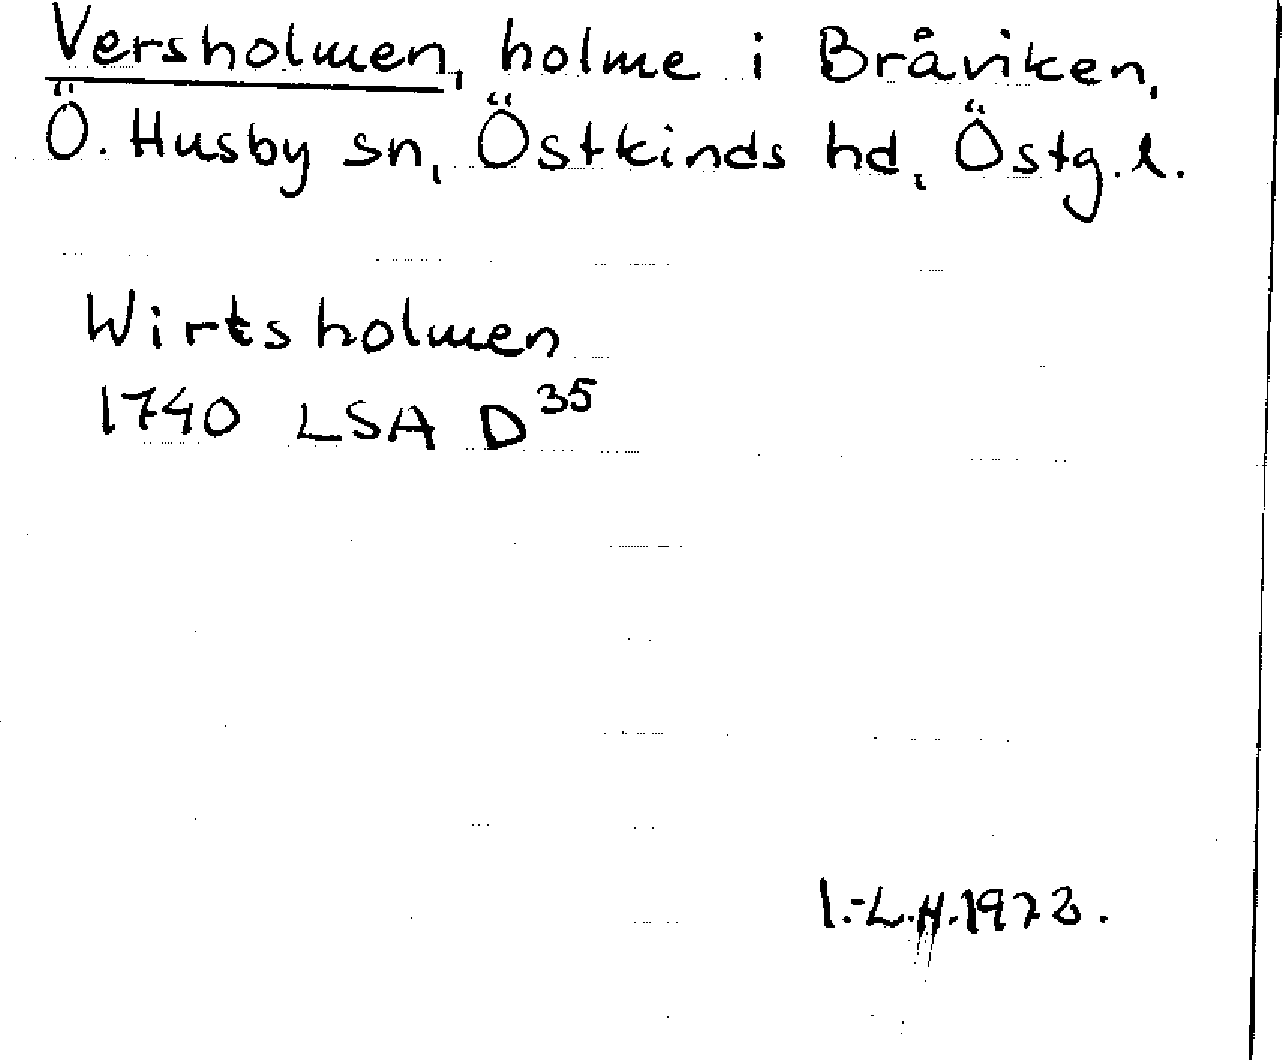 Versholmen, holme i Bråviken,
Ö. Husby sn, Östkinds hd, Östg. l.
Wirtsholmen
1740 LSA D³⁵
I.-L.H. 1973.